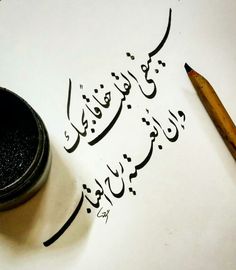 سيبقى القلب خفاقاً بحبك
وإن أتعبته رياح العتاب